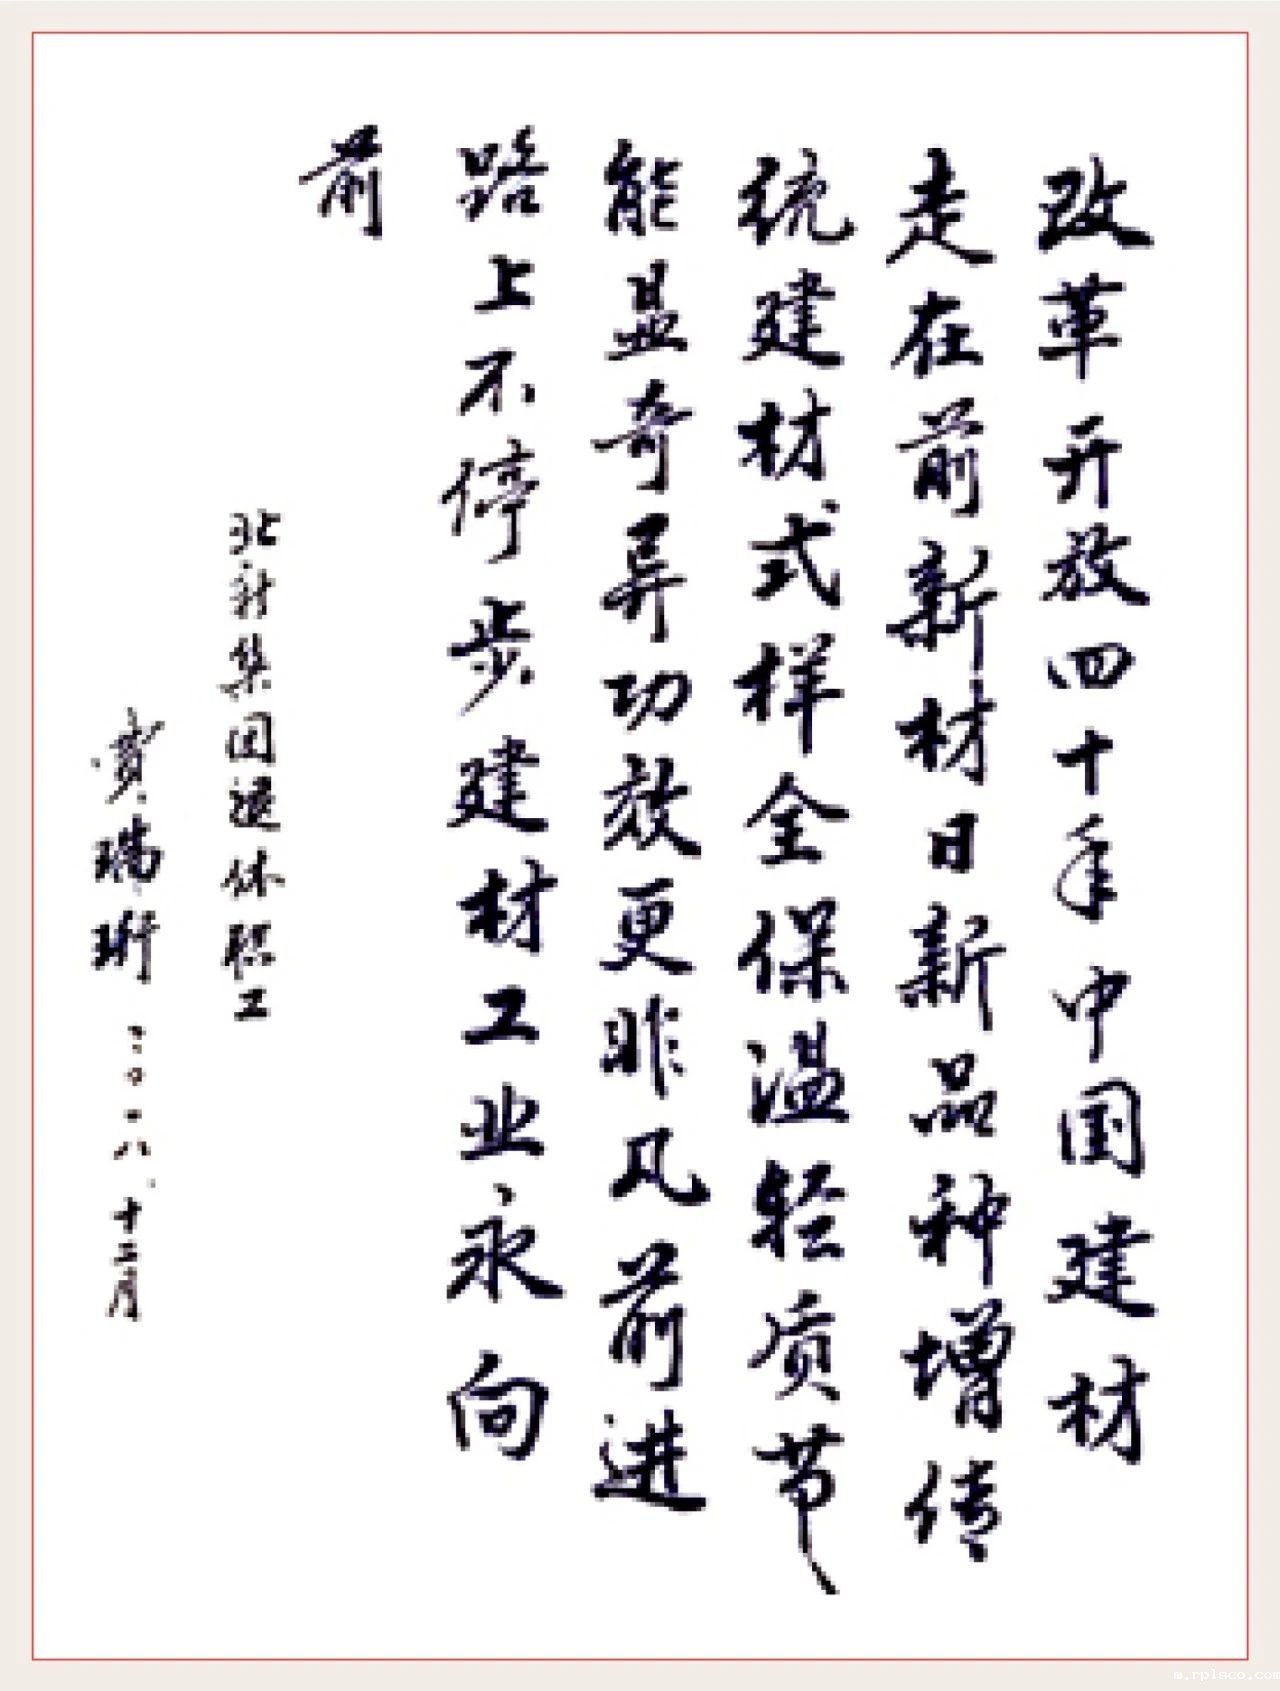 改革开放四十年中国建材
走在前新材日新品种增传
统建材式样全保温轻质节
能显奇异功效更非凡前进
路上不停步建材工业永向
前
北新集团退休职工
贾瑞珩 二〇一八、十二月
m.rplsco.com